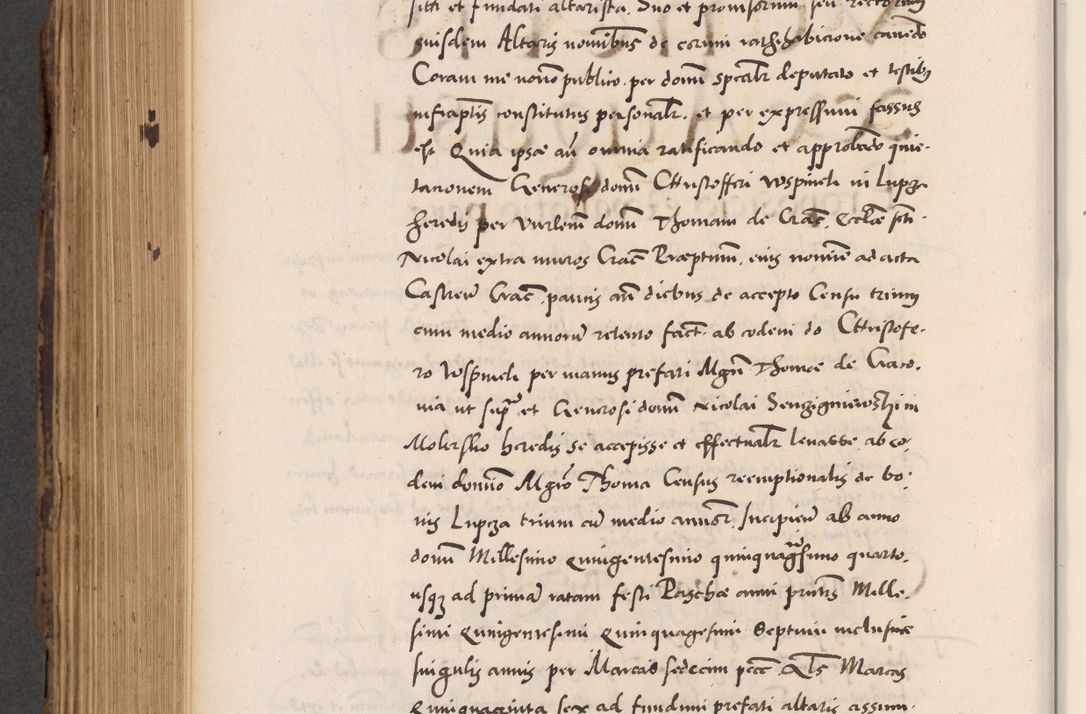 sui et fundati altarista. Suo et provisorum seu rectorum
euisdem Altaris nominibus de quorum rathihabicione cavendo
Coram me notario publico per domi spcalr deputato et testibus
infraptis constitutus personalr. et per expressum fassus
est Quia ipse an omnia ratificando et approbando quie-
tationem Generosi domi Christofferi Wspineli in Lupza
heredis per Vnrlem domi Thomam de Crac. Ecclæ sti-
Nicolai extra muros Crac Præptum, eius nomine ad acta
Castren Crac. paucis an diebus de accepto Censu trium
cum medio annorum retento fact. ab eodem do Christofe-
ro Wspineli per manus prefati Mgri Thomæ de Craco.
via ut supra et Generosi domi Nicolai
Molersko heredis se accepisse et effectualr levasse ab eo-
dem domino Mgro Thoma Census reemptionalis de bo-
nis Lupcza trium cum medio annor. Incipien ab anno
domi Millesimo Quingentesimo quinquagesimo quarto.
usqz ad primam ratam festi Paschæ anni prntis Mille-
simi Quingentesimi Quinquagesimi Septimi inclusive
singulis annis per Marcas sedecim pecc Als Marcas
Quinquaginta sex ad fundum prefati altaris assum-